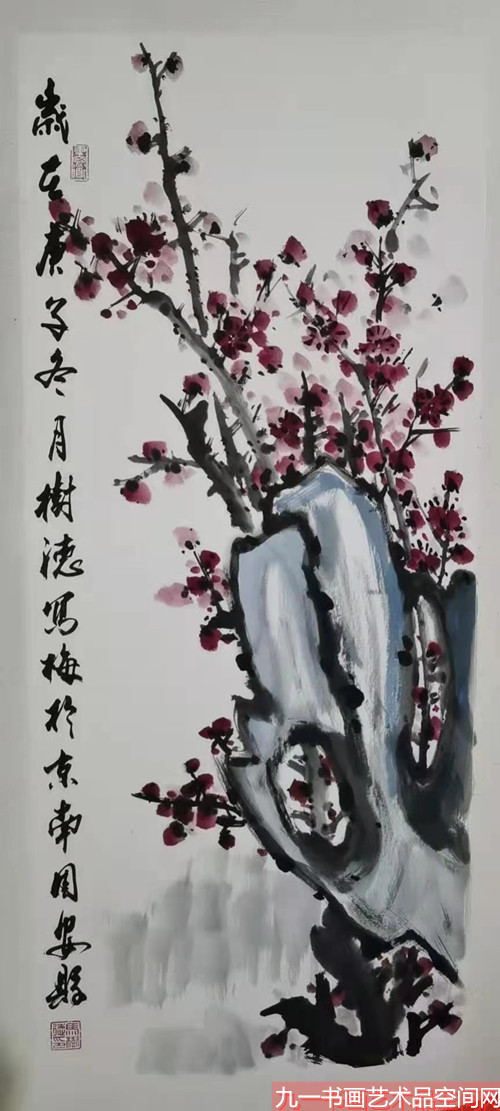 歲在庚子冬月樹德寫梅於京南固安縣
九一书画艺术品空间网